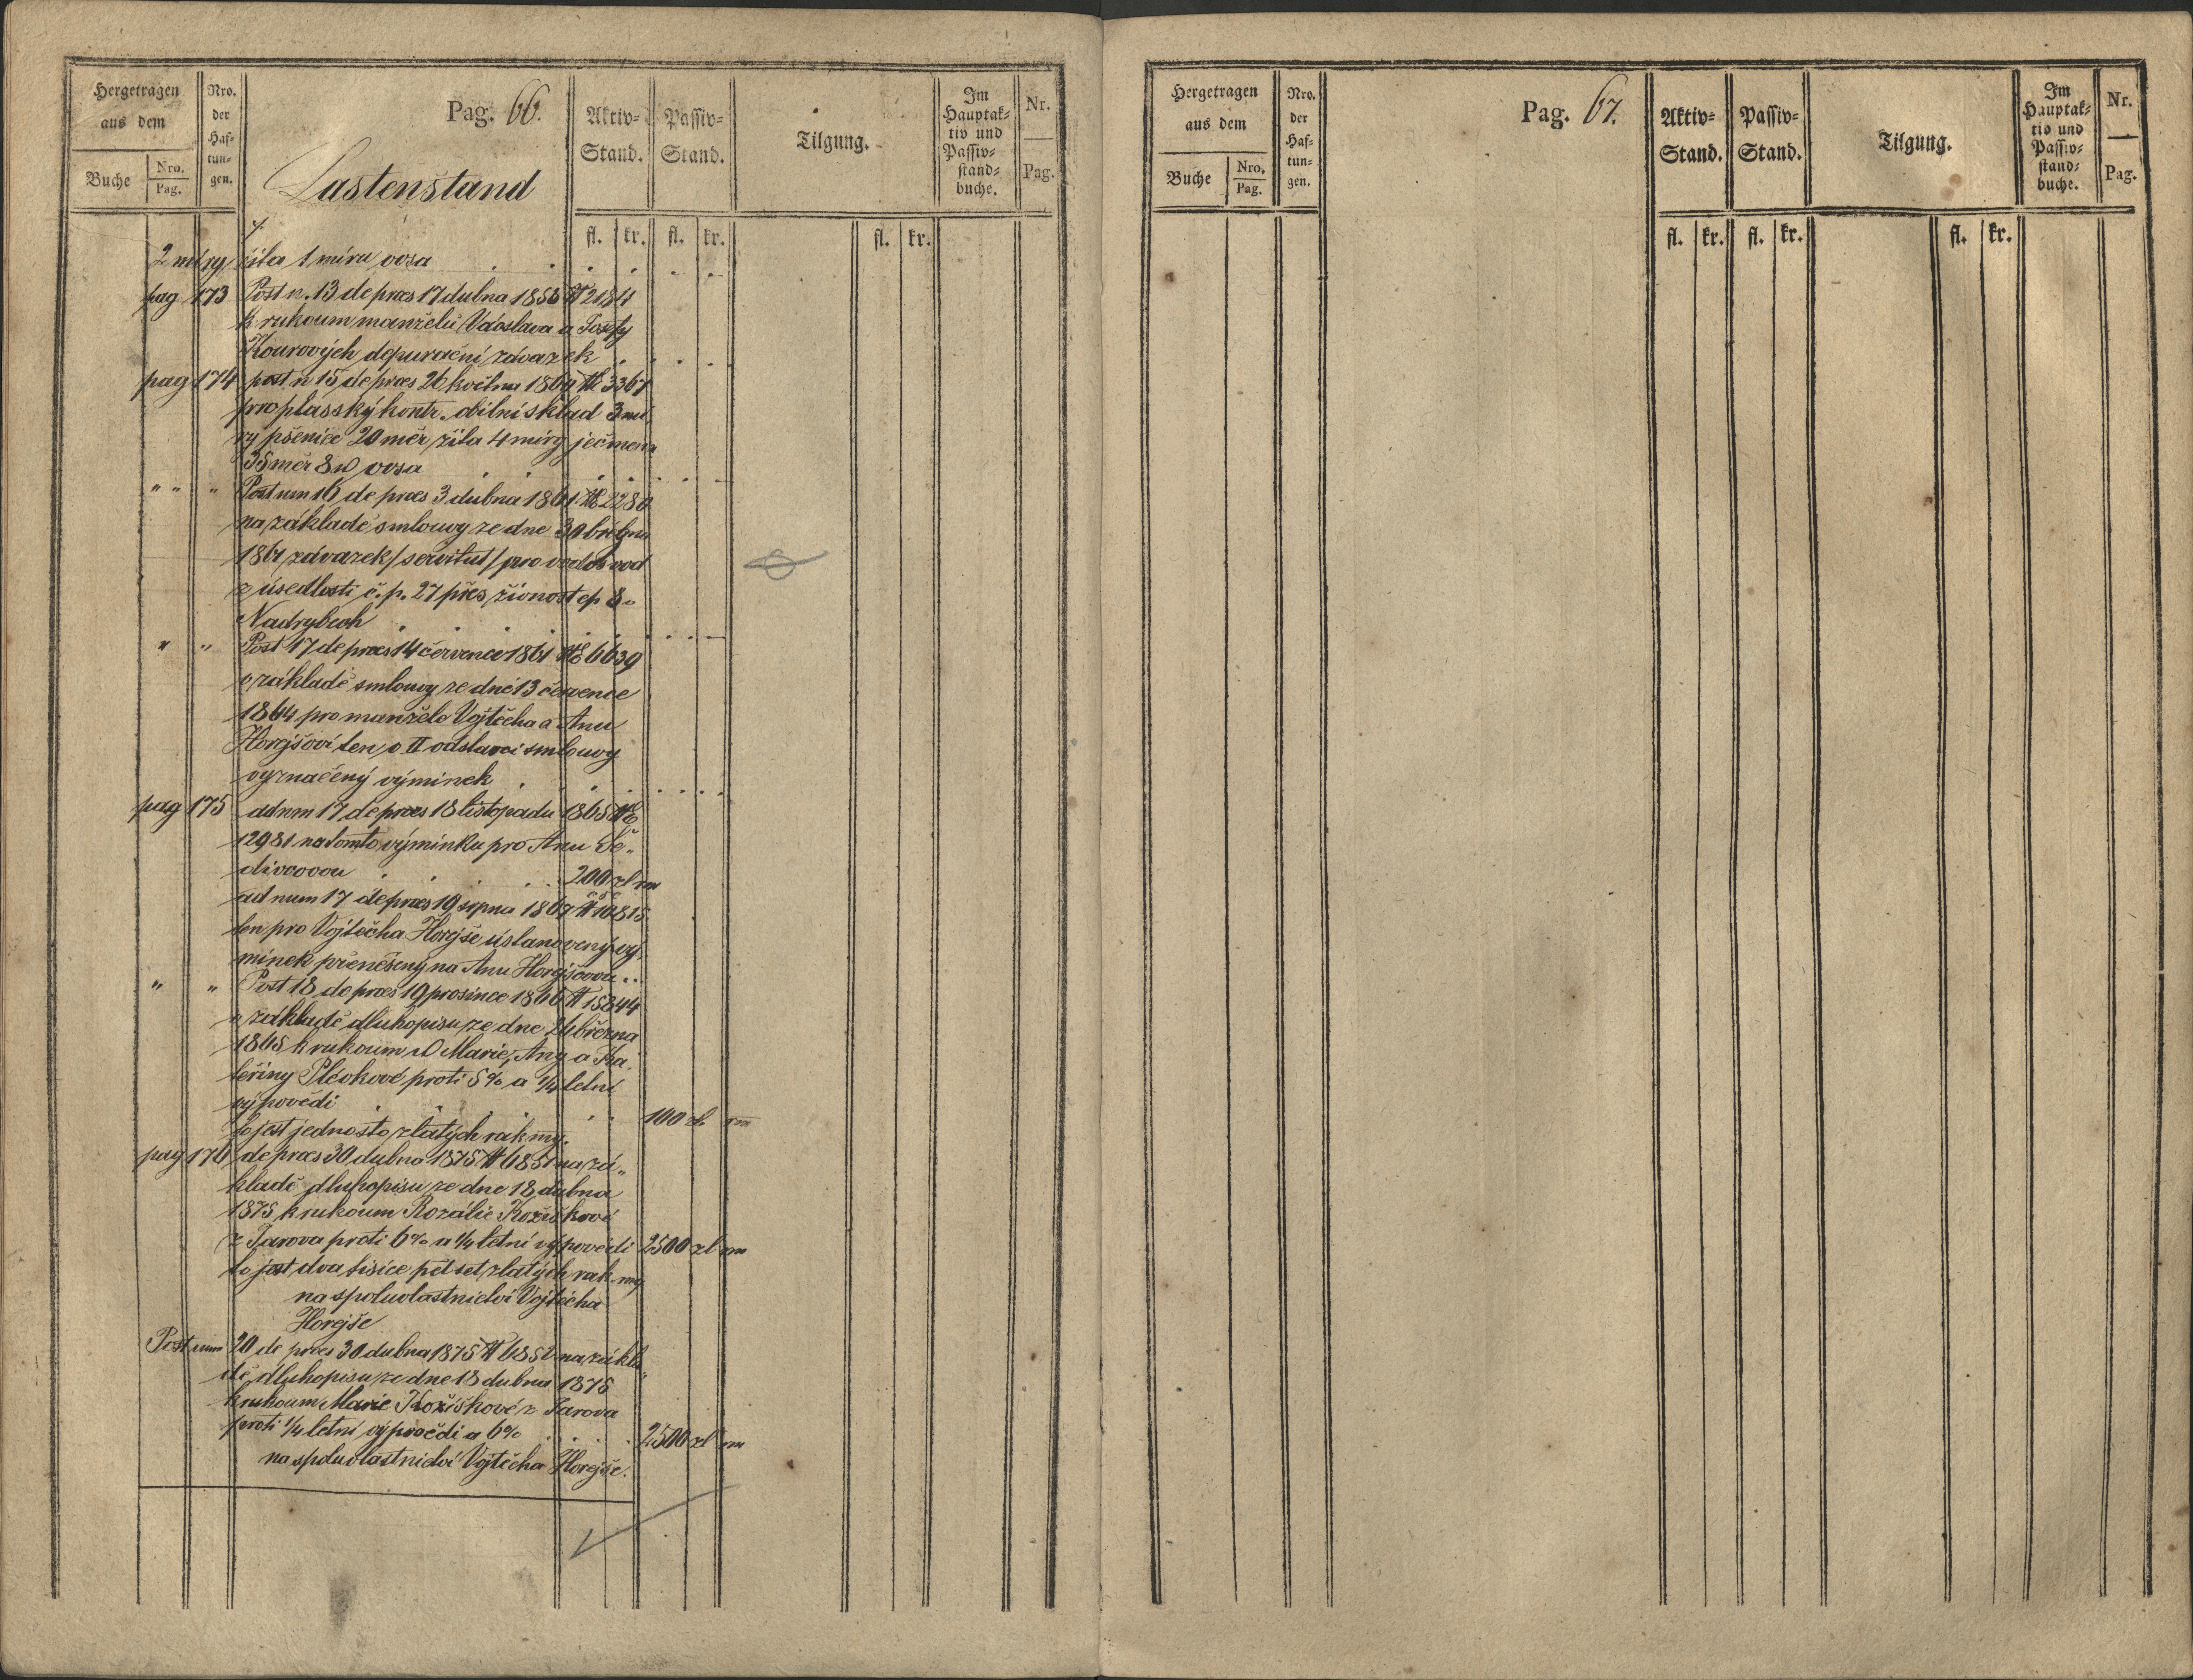 Hergetragen
aus dem
Buche
Nro.
Pag.
Nro.
der
Haf-
tun-
gen.
Pag. 66.
Lastenstand
Aktiv-
Stand.
Passiv-
Stand.
Tilgung.
Im
Hauptak-
tiv und
Passiv-
stand-
buche.
Nr.
Pag.
fl. kr. fl. kr. fl. kr.
2 míry žita 1 míru ovsa
pag 173 Post n. 13 de præs 17 dubna 1858 № 2184
k rukoum manželů Václava a Josefy
Kourových depurační závazek
pag 174 post n 15 de præs 26 května 1860 № 3367
pro plasský kontr. obilní sklad 3 mí
ry pšenice 20 měr žita 4 míry ječmena
35 měr 8 ovsa
" " " Post num 16 de præs 3 dubna 1861 № 2280
na základě smlouvy ze dne 30 března
1861 závazek /servitut/ pro vodovod
z úsedlosti č. p. 27 přes živnost čp 8 „
Nadrybech
" " Post 17 de præs 14 července 1861 № 6639
v základě smlouvy ze dne 13 července
1864 pro manžele Vojtěcha a Anu
Horejšovi ten v II odstavci smlouvy
vyznačený výminek
pag 175 ad num 17 de præs 18 listopadu 1865 №
12981 na tomto výminku pro Anu Še„
divcovou 200 zl
ad num 17 de præs 19 srpna 1867 № 10815
ten pro Vojtěcha Horejše ustanovený vý
minek přenešený na Anu Horejšovou
" " Post 18 de præs 19 prosince 1866 № 15844
v základě dluhopisu ze dne 26 března
1865 k rukoum Marie, Any a Ka
teřiny Plevkové proti 5% a 1/4 letní
výpovědi 100 zl rm
to jest jednosto zlatých rak. my.
pag 176 de præs 30 dubna 1875 № 6851 na zá„
kladě dluhopisu ze dne 18 dubna
1875 k rukoum Rozálie Kožíškové
z Jarova proti 6% a 1/4 letní výpovědi 2500 zl rm
to jest dva tisíce pět set zlatých rak my
na spoluvlastnictví Vojtěcha
Horejše
Post num 20 de præs 30 dubna 1875 № 6852 na zákla„
dě dluhopisu ze dne 18 dubna 1875
k rukoum Marie Kožíškové z Jarova
proti 1/4 letní výpovědi a 6% 2500 zl rm
na spoluvlastnictví Vojtěcha Horejše.
Hergetragen
aus dem
Buche
Nro.
Pag.
Nro.
der
Haf-
tun-
gen.
Pag. 67.
Aktiv-
Stand.
Passiv-
Stand.
Tilgung.
Im
Hauptak-
tiv und
Passiv-
stand-
buche.
Nr.
Pag.
fl. kr. fl. kr. fl. kr.